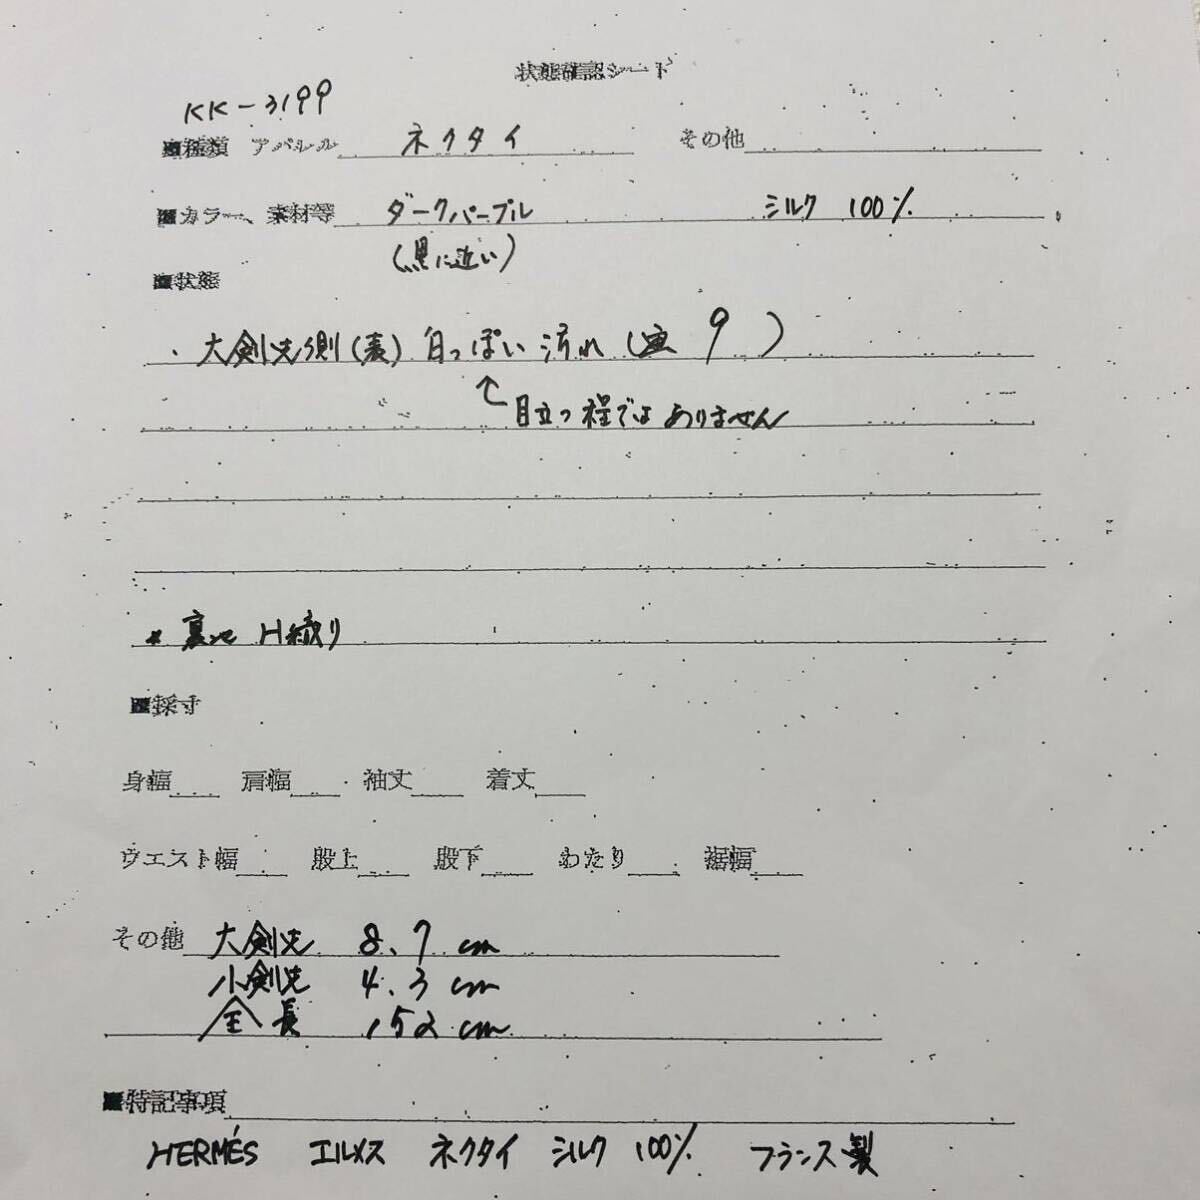 状態確認シート
KK-3199
■種類 アパレル ネクタイ その他
■カラー、素材等 ダークパープル シルク 100%
(黒に近い)
■状態
・大剣先側(表) 白っぽい汚れ( 9 )
↑目立つ程ではありません
* 裏地 H織り
■採寸
身幅 肩幅 袖丈 着丈
ウエスト幅 股上 股下 わたり 裾幅
その他 大剣先 8.7 cm
小剣先 4.3 cm
全長 152 cm
■特記事項
HERMÉS エルメス ネクタイ シルク 100% フランス製